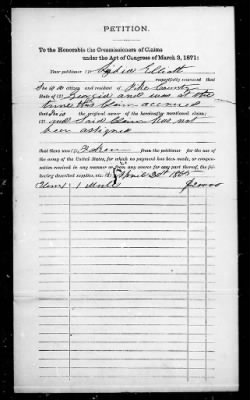 PETITION.
To the Honorable the Commissioners of Claims
under the Act of Congress of March 3, 1871:
Your petitioner Elliott
respectfully represent that
he is a citizen and resident of Pike County
State of Georgia and was at the
time this Claim accrued
that he is the original owner of the hereinafter mentioned claim;
and Said Claim has not
been assigned
that there was taken from the petitioner for the use
of the army of the United States, for which no payment has been made, or compensation
received in any manner or from any source for any part thereof, the following
described supplies, etc. April 1865
1 Mule